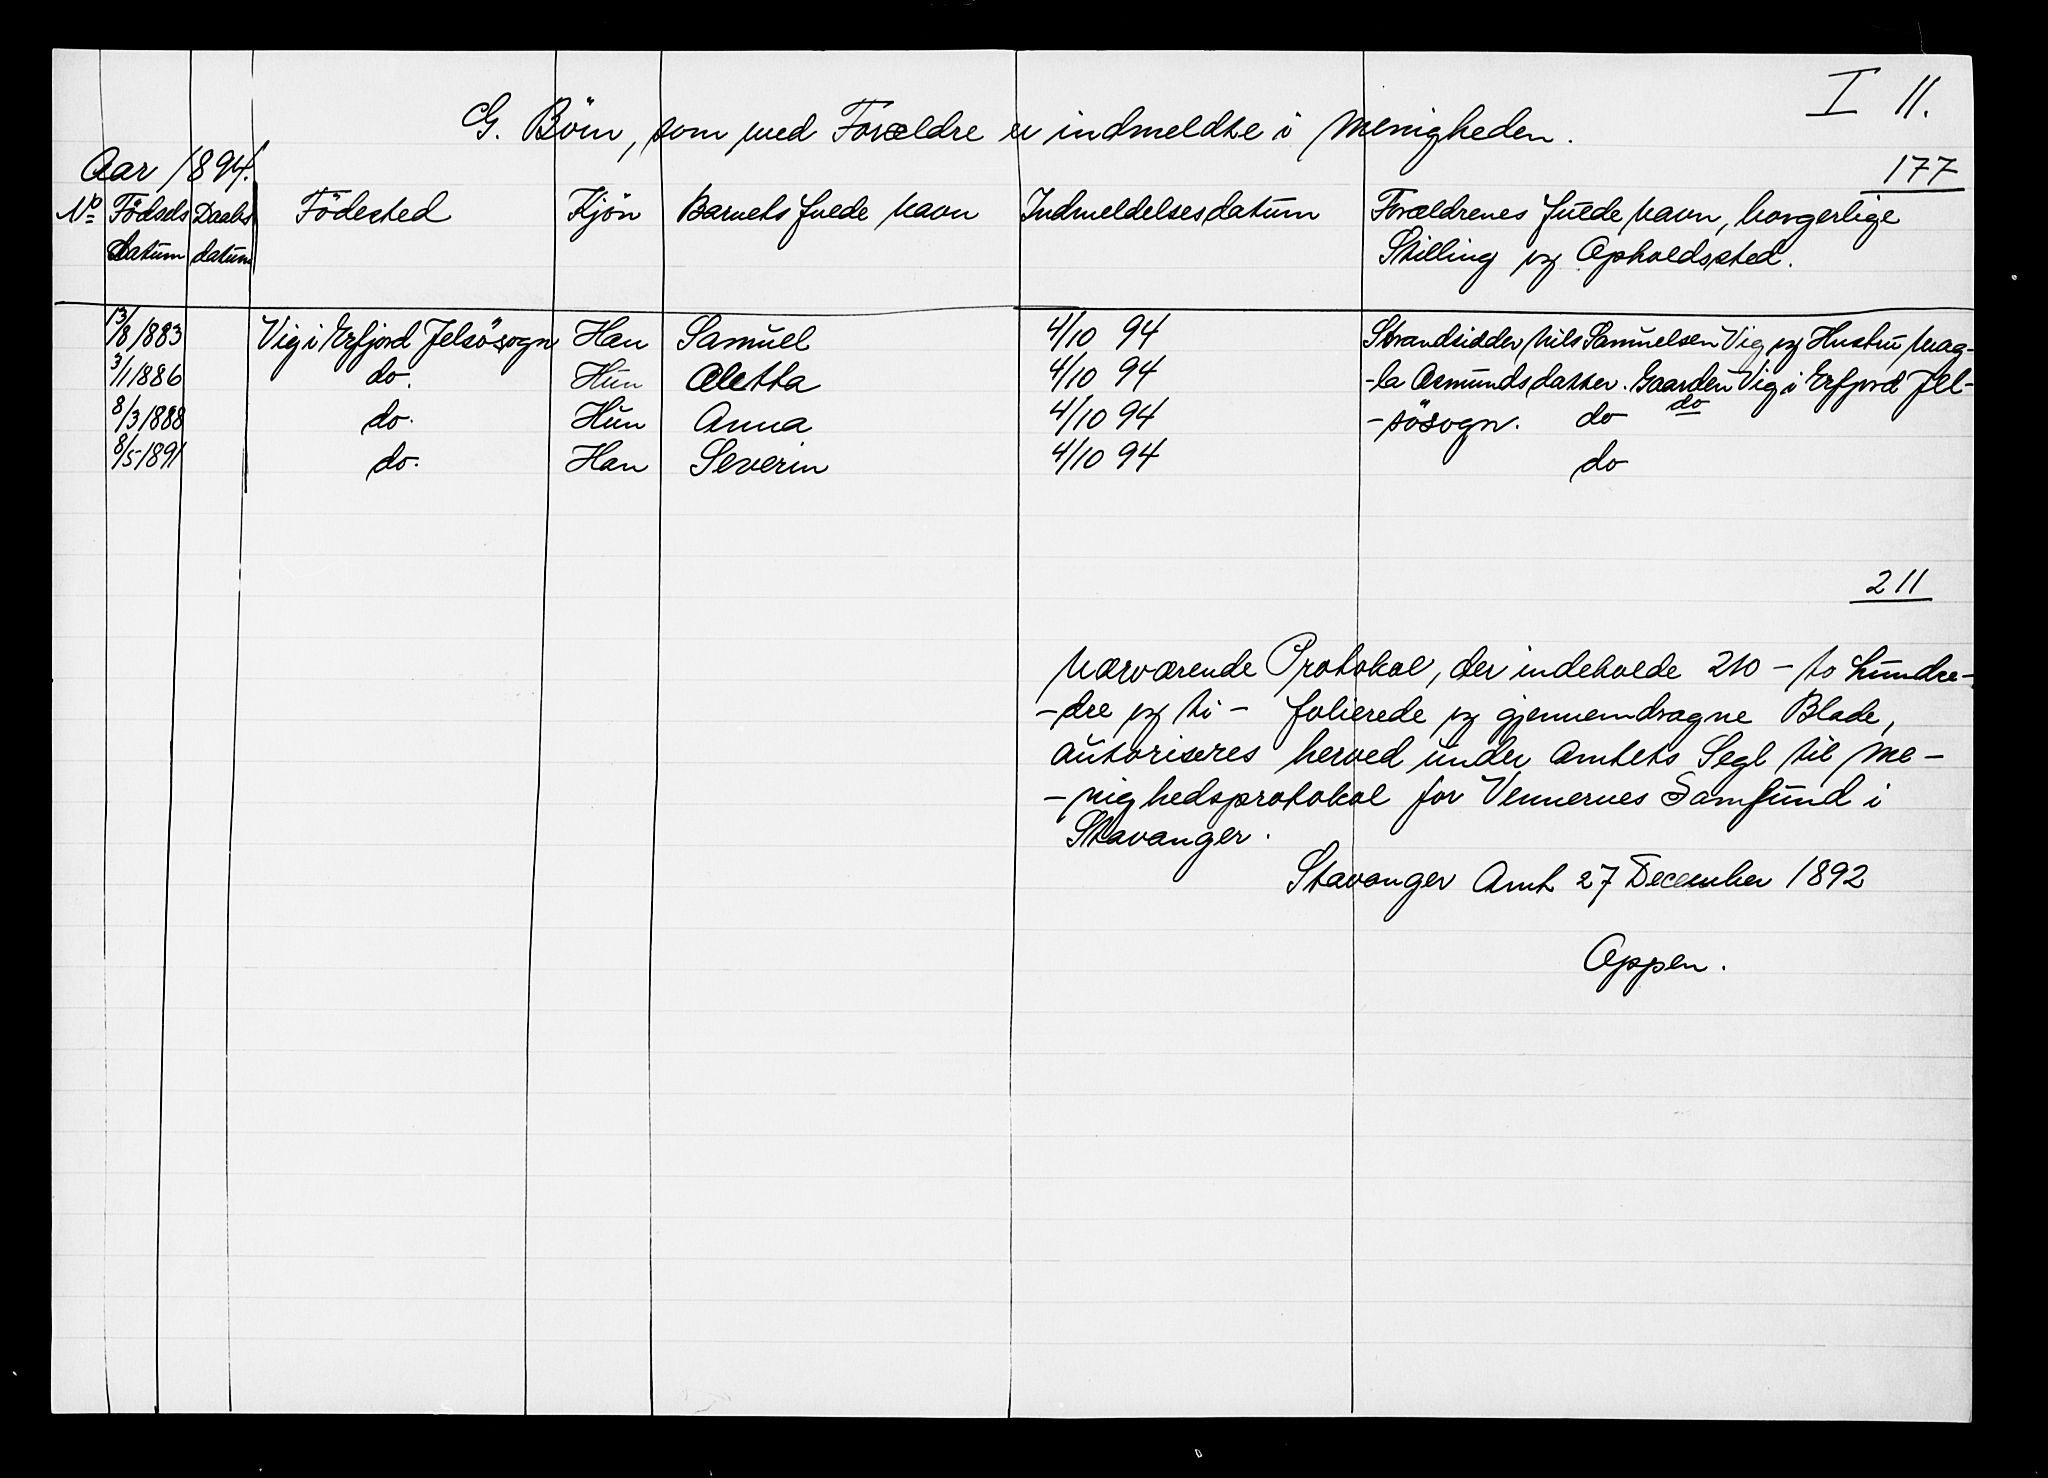 I 11.
G. Börn, som med Forældre er indmeldte i Menigheden.
Aar 1894.
177
No Födsels Daabs Födested Kjön Barnets fulde Navn Indmeldelsesdatum Forældrenes fulde Navn, borgerlige
Datum datum Stilling og Opholdssted.
13/8 1883 Vig i Erfjord Jelsösogn Han Samuel 4/10 94 Strandsidder Nils Samuelsen Vig og Hustru Mag-
3/1 1886 do. Hun Aletta 4/10 94 -la Asmundsdatter. Gaarden Vig i Erfjord Jel-
do
8/3 1888 do. Hun Anna 4/10 94 -sösogn. do
8/5 1891 do. Han Severin 4/10 94 do
211
Nærværende Protokol, der indeholde 210 - to hundre-
-dre og ti - folierede og gjennemdragne Blade,
autoriseres herved under Amtets Segl til Me-
-nighedsprotokol for Vennernes Samfund i
Stavanger.
Stavanger Amt 27 December 1892